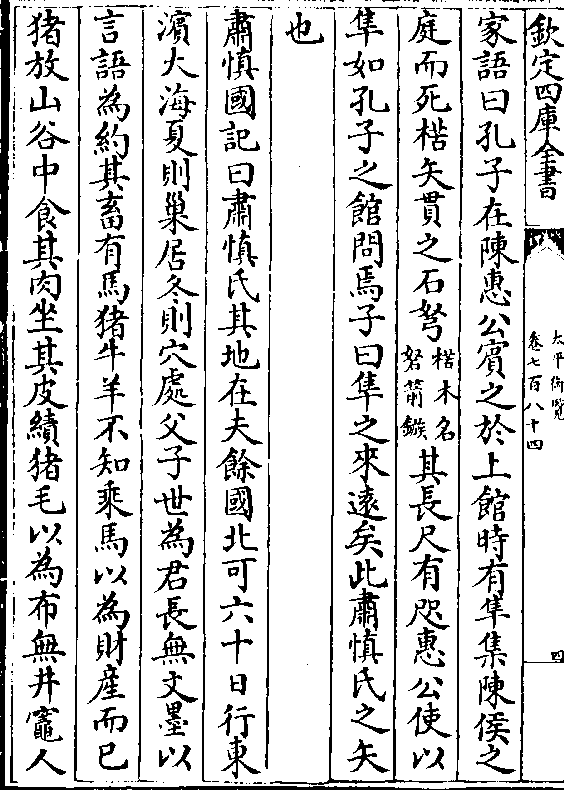 欽定四庫全書
太平御覽
卷七百八十四
四
家語曰孔子在陳惠公賓之於上館時有隼集陳侯之
庭而死楛矢貫之石砮楛木名砮箭鏃其長尺有咫惠公使以
隼如孔子之館問焉子曰隼之來遠矣此肅慎氏之矢
也
肅慎國記曰肅慎氏其地在夫餘國北可六十日行東
濱大海夏則巢居冬則穴處父子世為君長無文墨以
言語為約其畜有馬猪牛羊不知乘馬以為財産而已
猪放山谷中食其肉坐其皮績猪毛以為布無井竈人